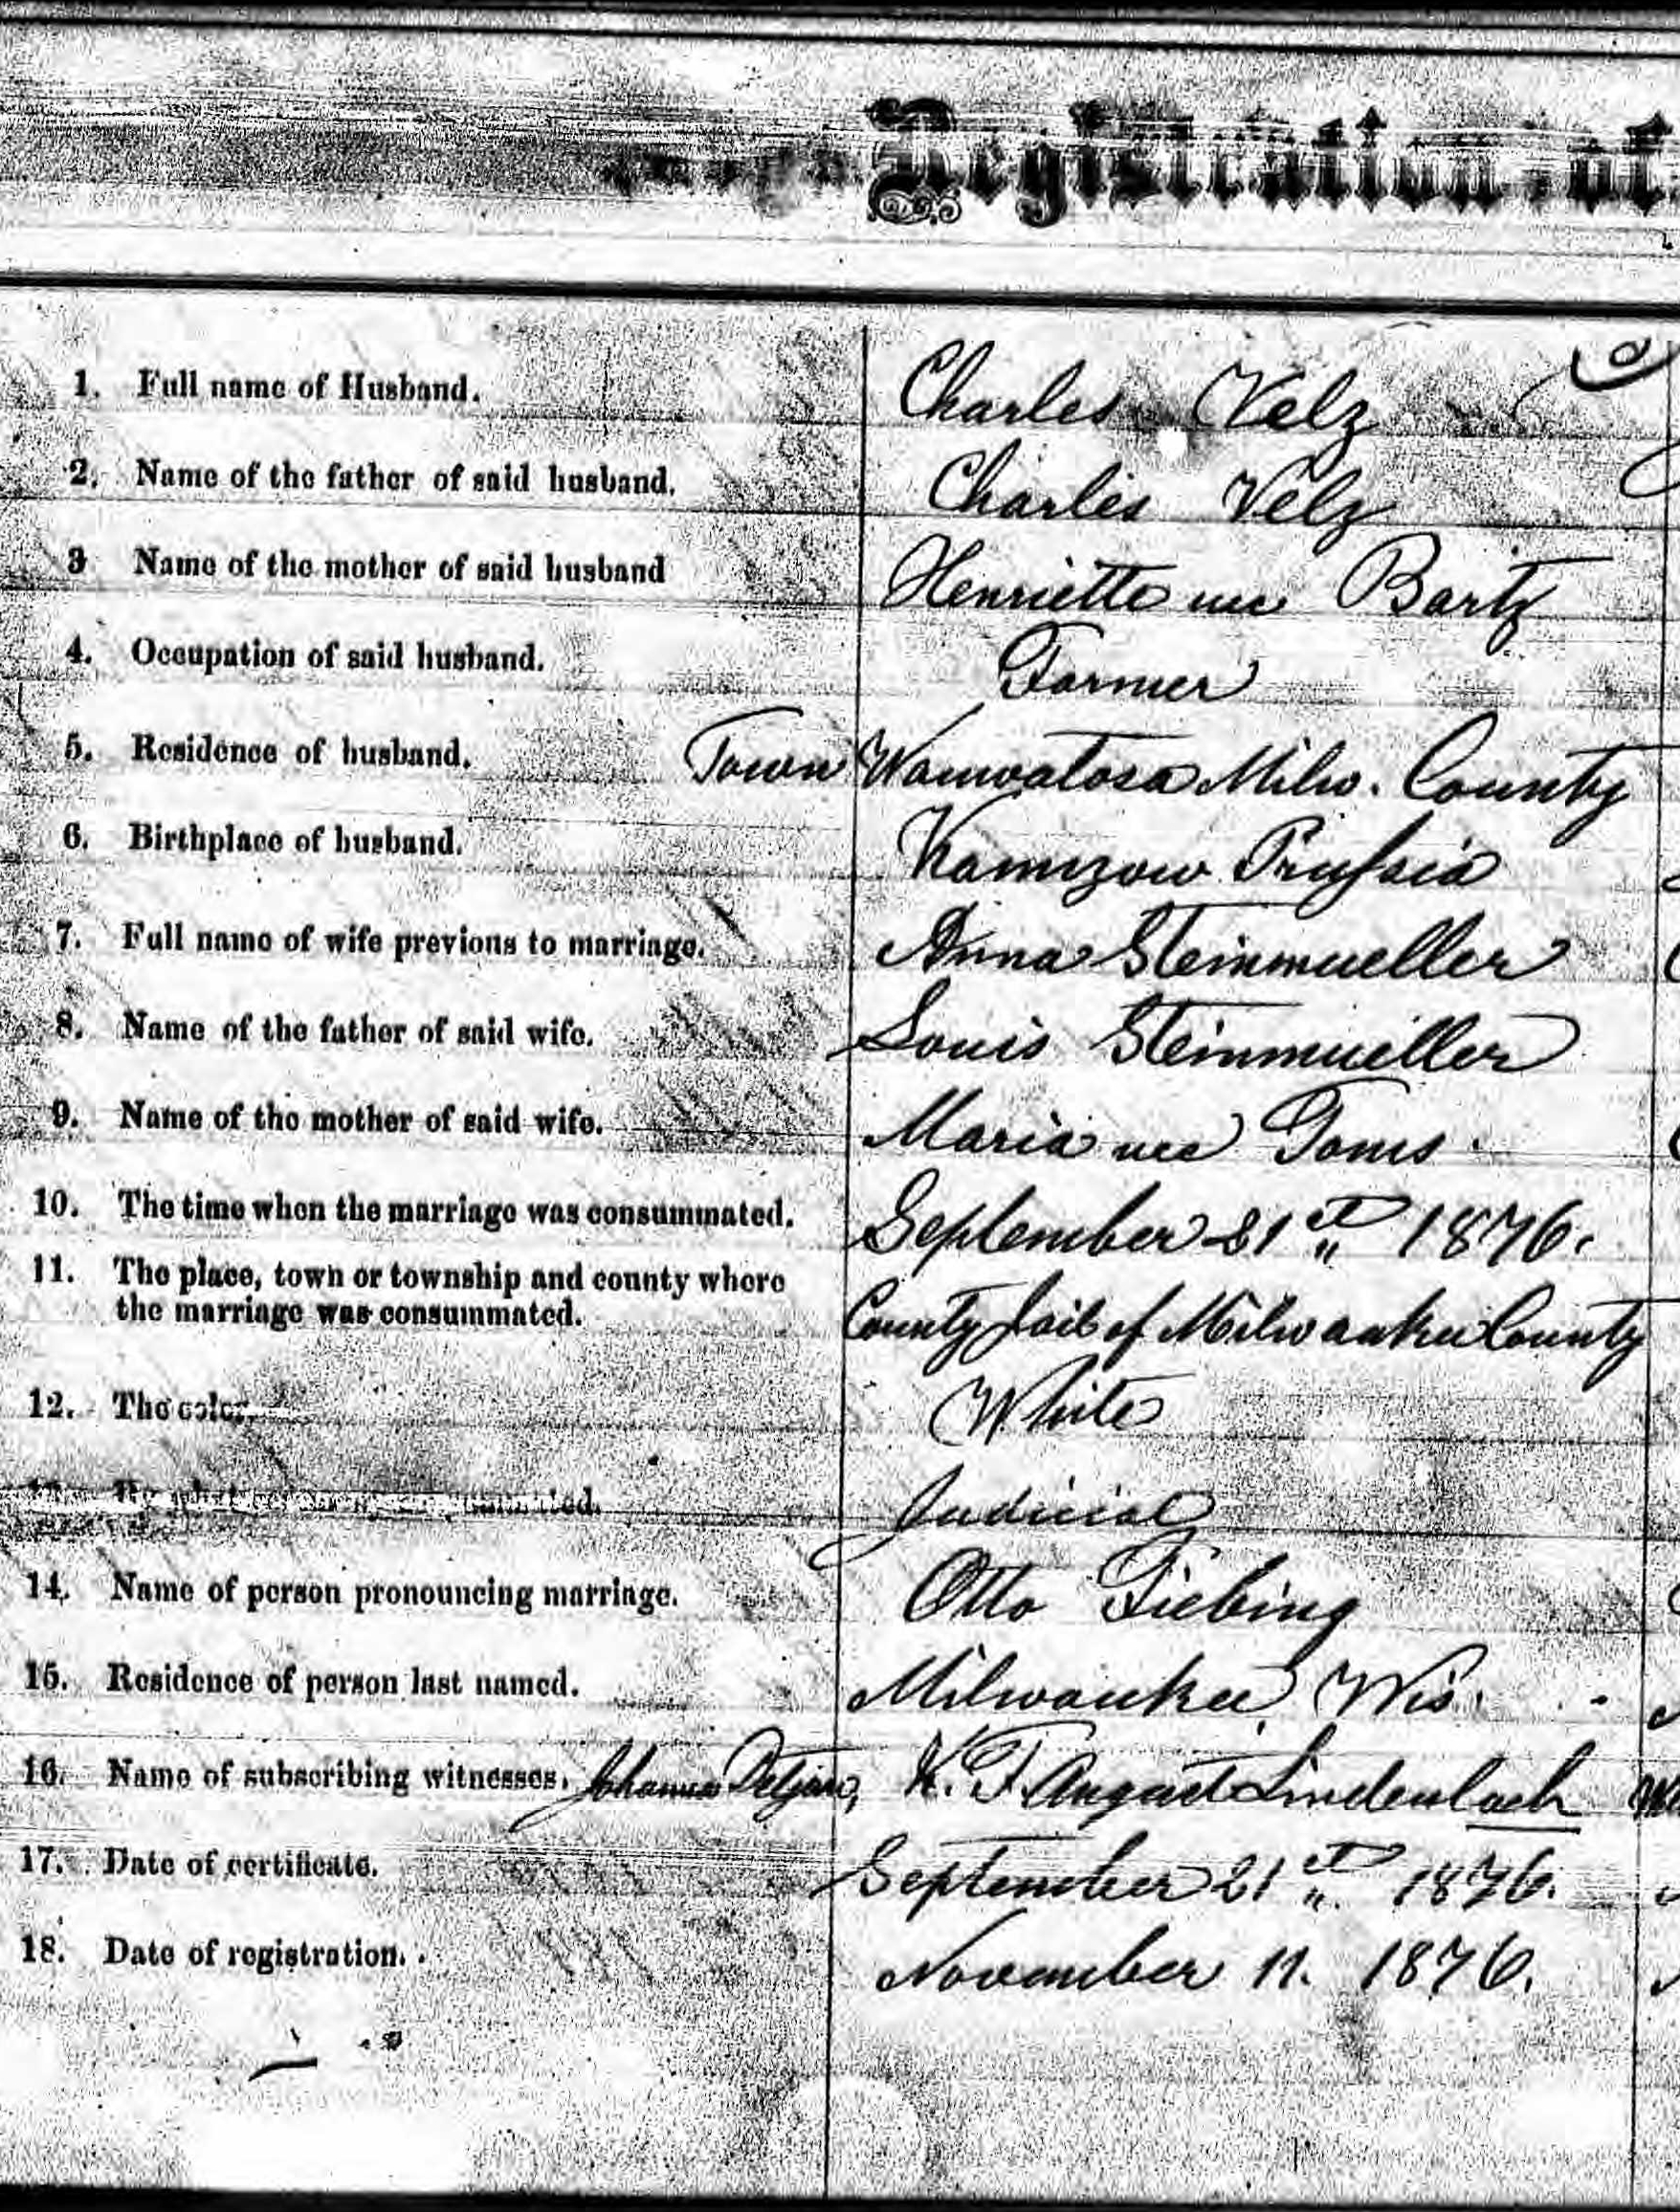 Registration of
1. Full name of Husband. Charles Velz
2. Name of the father of said husband. Charles Velz
3 Name of the mother of said husband Henriette nee Bartz
4. Occupation of said husband. Farmer
5. Residence of husband. Town Wauwatosa Milw. County
6. Birthplace of husband. Prussia
7. Full name of wife previous to marriage. Anna Steinmueller
8. Name of the father of said wife. Louis Steinmueller
9. Name of the mother of said wife. Maria nee
10. The time when the marriage was consummated. September 21st 1876.
11. The place, town or township and county where
the marriage was consummated. County Jail of Milwaukee County
12. The color. White
Judicial
14. Name of person pronouncing marriage. Otto Fiebing
15. Residence of person last named. Milwaukee, Wis.
16. Name of subscribing witnesses. August
17. Date of certificate. September 21st 1876.
18. Date of registration. November 11. 1876.